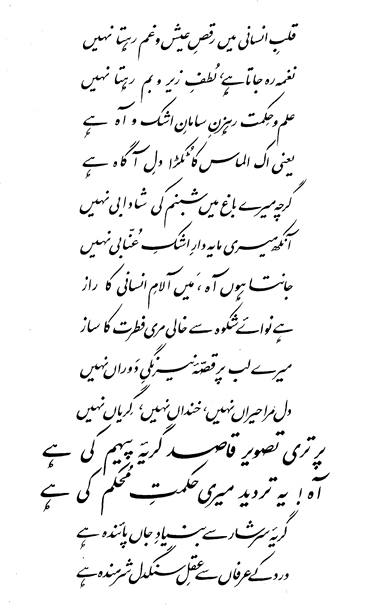 قلبِ انسانی میں رقصِ عیش و غم رہتا نہیں
نغمہ رہ جاتا ہے، لُطفِ زیر و بم رہتا نہیں
علم و حکمت رہزنِ سامانِ اشک و آہ ہے
یعنی اک الماس کا ٹکڑا دلِ آگاہ ہے
گرچہ میرے باغ میں شبنم کی شادابی نہیں
آنکھ میری مایہ دارِ اشکِ عُنّابی نہیں
جانتا ہوں آہ، مَیں آلامِ انسانی کا راز
ہے نوائے شکوہ سے خالی مری فطرت کا ساز
میرے لب پر قصّۂ نیرنگیِ دَوراں نہیں
دل مرا حیراں نہیں، خنداں نہیں، گِریاں نہیں
پر تری تصویر قاصد گریۂ پیہم کی ہے
آہ! یہ تردید میری حکمتِ مُحکم کی ہے
گریۂ سرشار سے بنیادِ جاں پائندہ ہے
درد کے عرفاں سے عقلِ سنگدل شرمندہ ہے